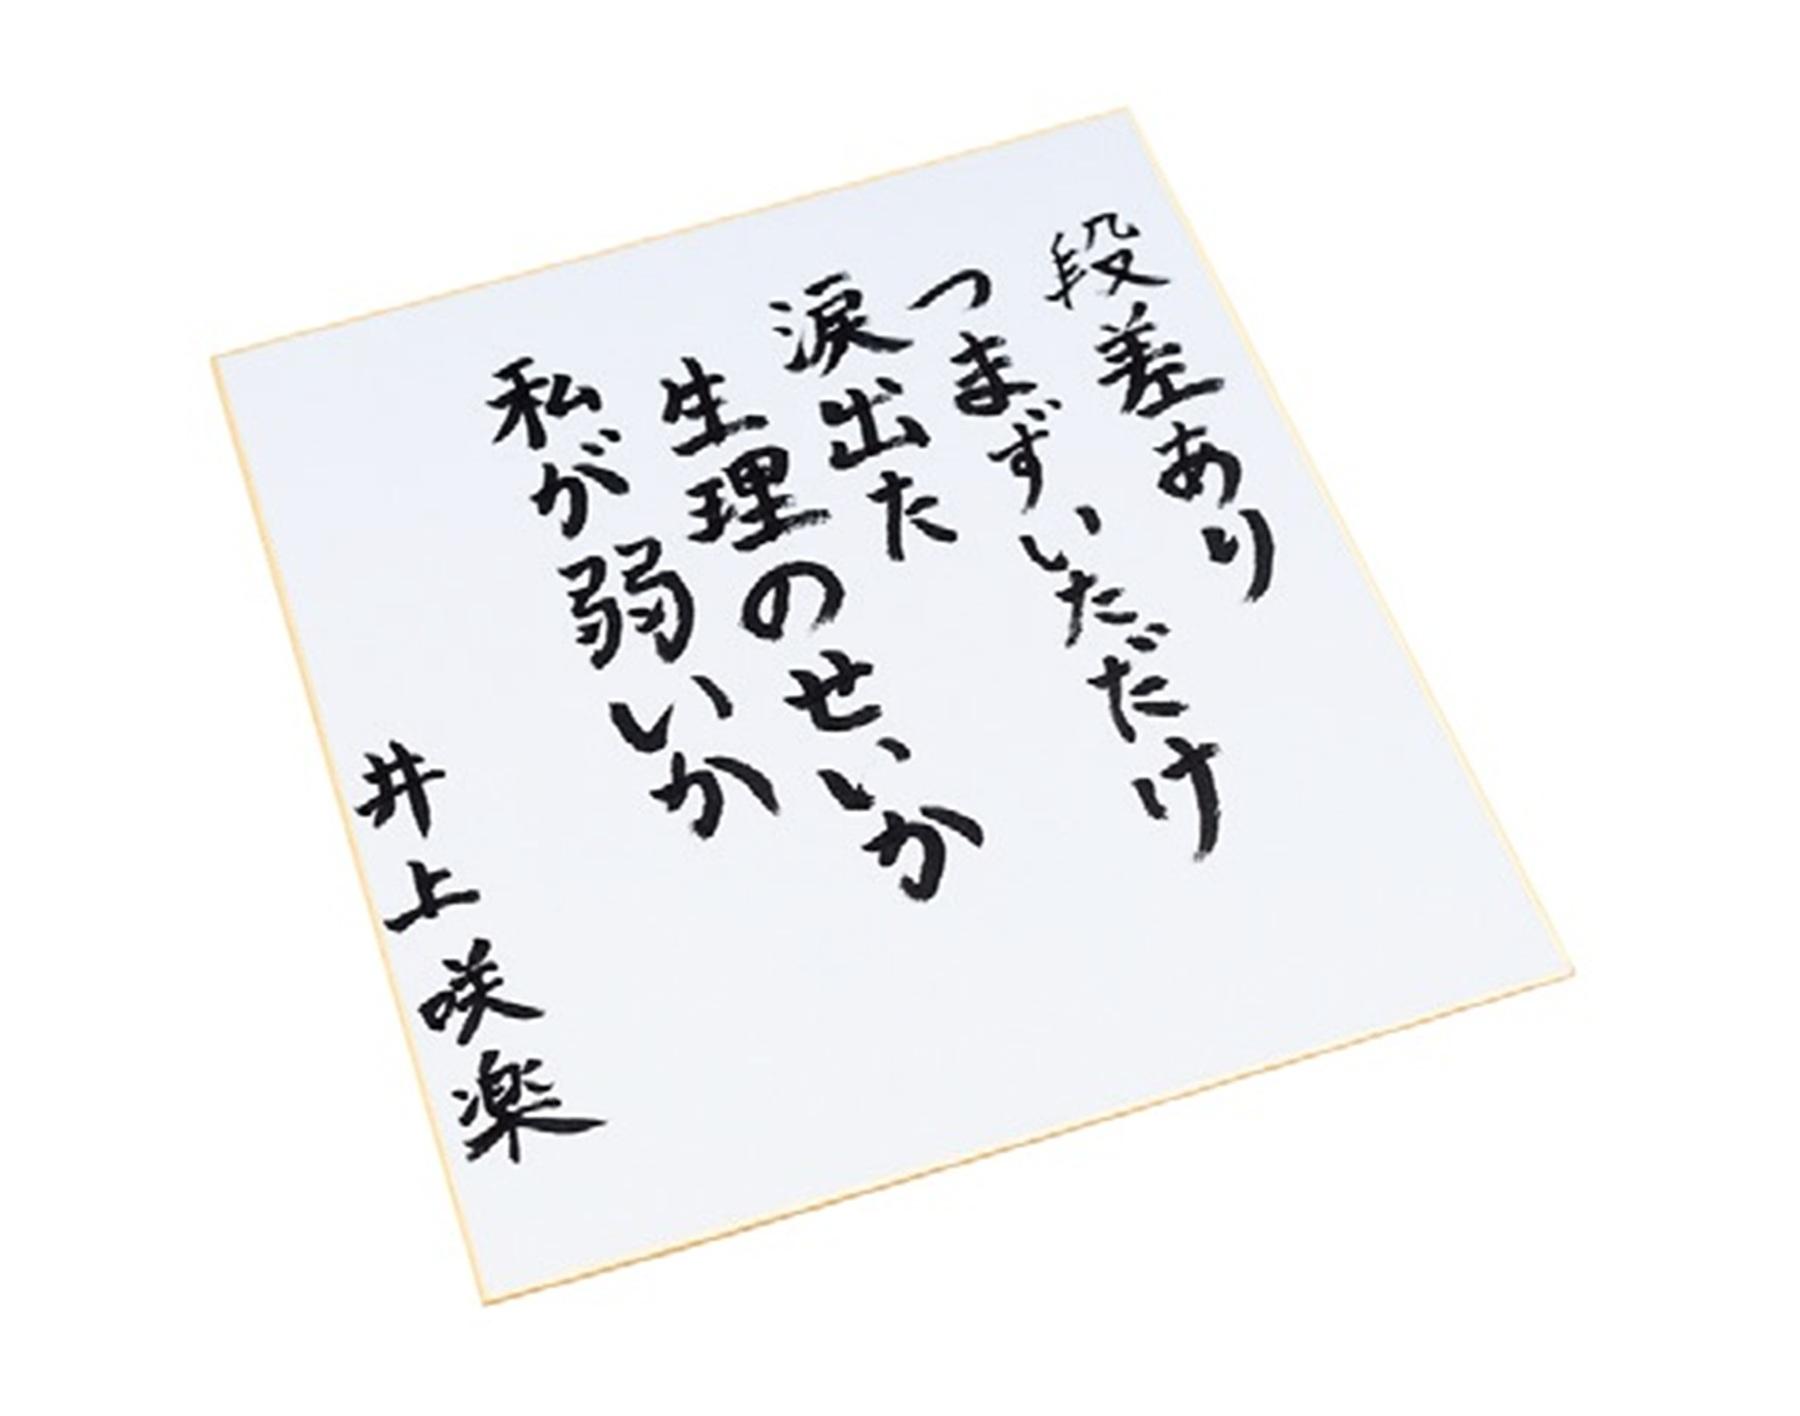 段差あり
つまずいただけ
涙出た
生理のせいか
私が弱いか
井上咲楽